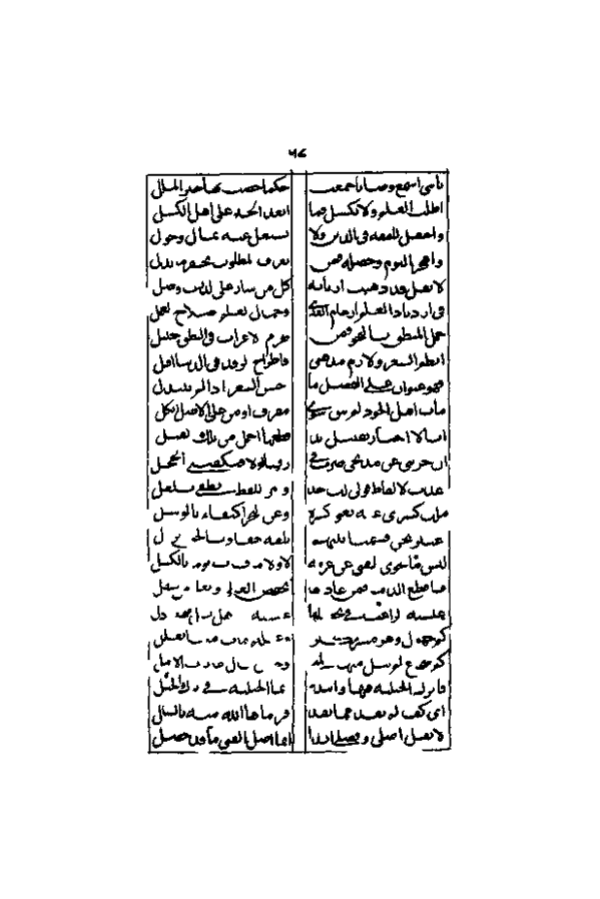 يا بني اسمع وصايا جمعت حكما خصت بها خير الملل
اطلب العلم ولا تكسل فما ابعد الخير على اهل الكسل
واحتفل للفقه في الدين ولا تشتغل عنه بمال وخول
واهجر النوم وحصله فمن يعرف المطلوب يحقر ما بذل
لا تقل قد ذهبت اربابه كل من سار على الدرب وصل
في ازدياد العلم ارغام العدى وجمال العلم صلاح العمل
جمل المنطق بالنحو فمن يحرم الاعراب في النطق
انظم الشعر ولازم مذهبي فاطراح الرفد في الدنيا اقل
فهو عنوان على الفضل ما احسن الشعر اذا لم يبتذل
مات اهل الجود لم يبق سوى مقرف او من على الاصل اتكل
انا لا اختار تقبيل يد قطعها اجمل من تلك القبل
ان جزتني عن مديحي صرت في رقها او لا فيكفيني الخجل
اعذب الالفاظ قولي لك خذ وامر اللفظ نطقي بلعل
ملك كسرى عنه تغني كسرة وعن البحر اكتفاء بالوشل
اعتبر نحن قسمنا بينهم تلقه حقا وبالحق نزل
ليس ما يحوي الفتى عن عزمه لا ولا ما فات يوما بالكسل
قاطع الدنيا فمن عاداتها تخفض العالي وتعلي من سفل
عيشة الراغب في تحصيلها عيشة
كم جهول وهو مثر مكثر
كم شجاع لم ينل منها المنى وجبان نال غايات الامل
فاترك الحيلة فيها واتئد انما الحيلة في ترك الحيل
اي كف لم تفد مما تفد فرماها الله منه بالشلل
لا تقل اصلي وفصلي ابدا انما اصل الفتى ما قد حصل